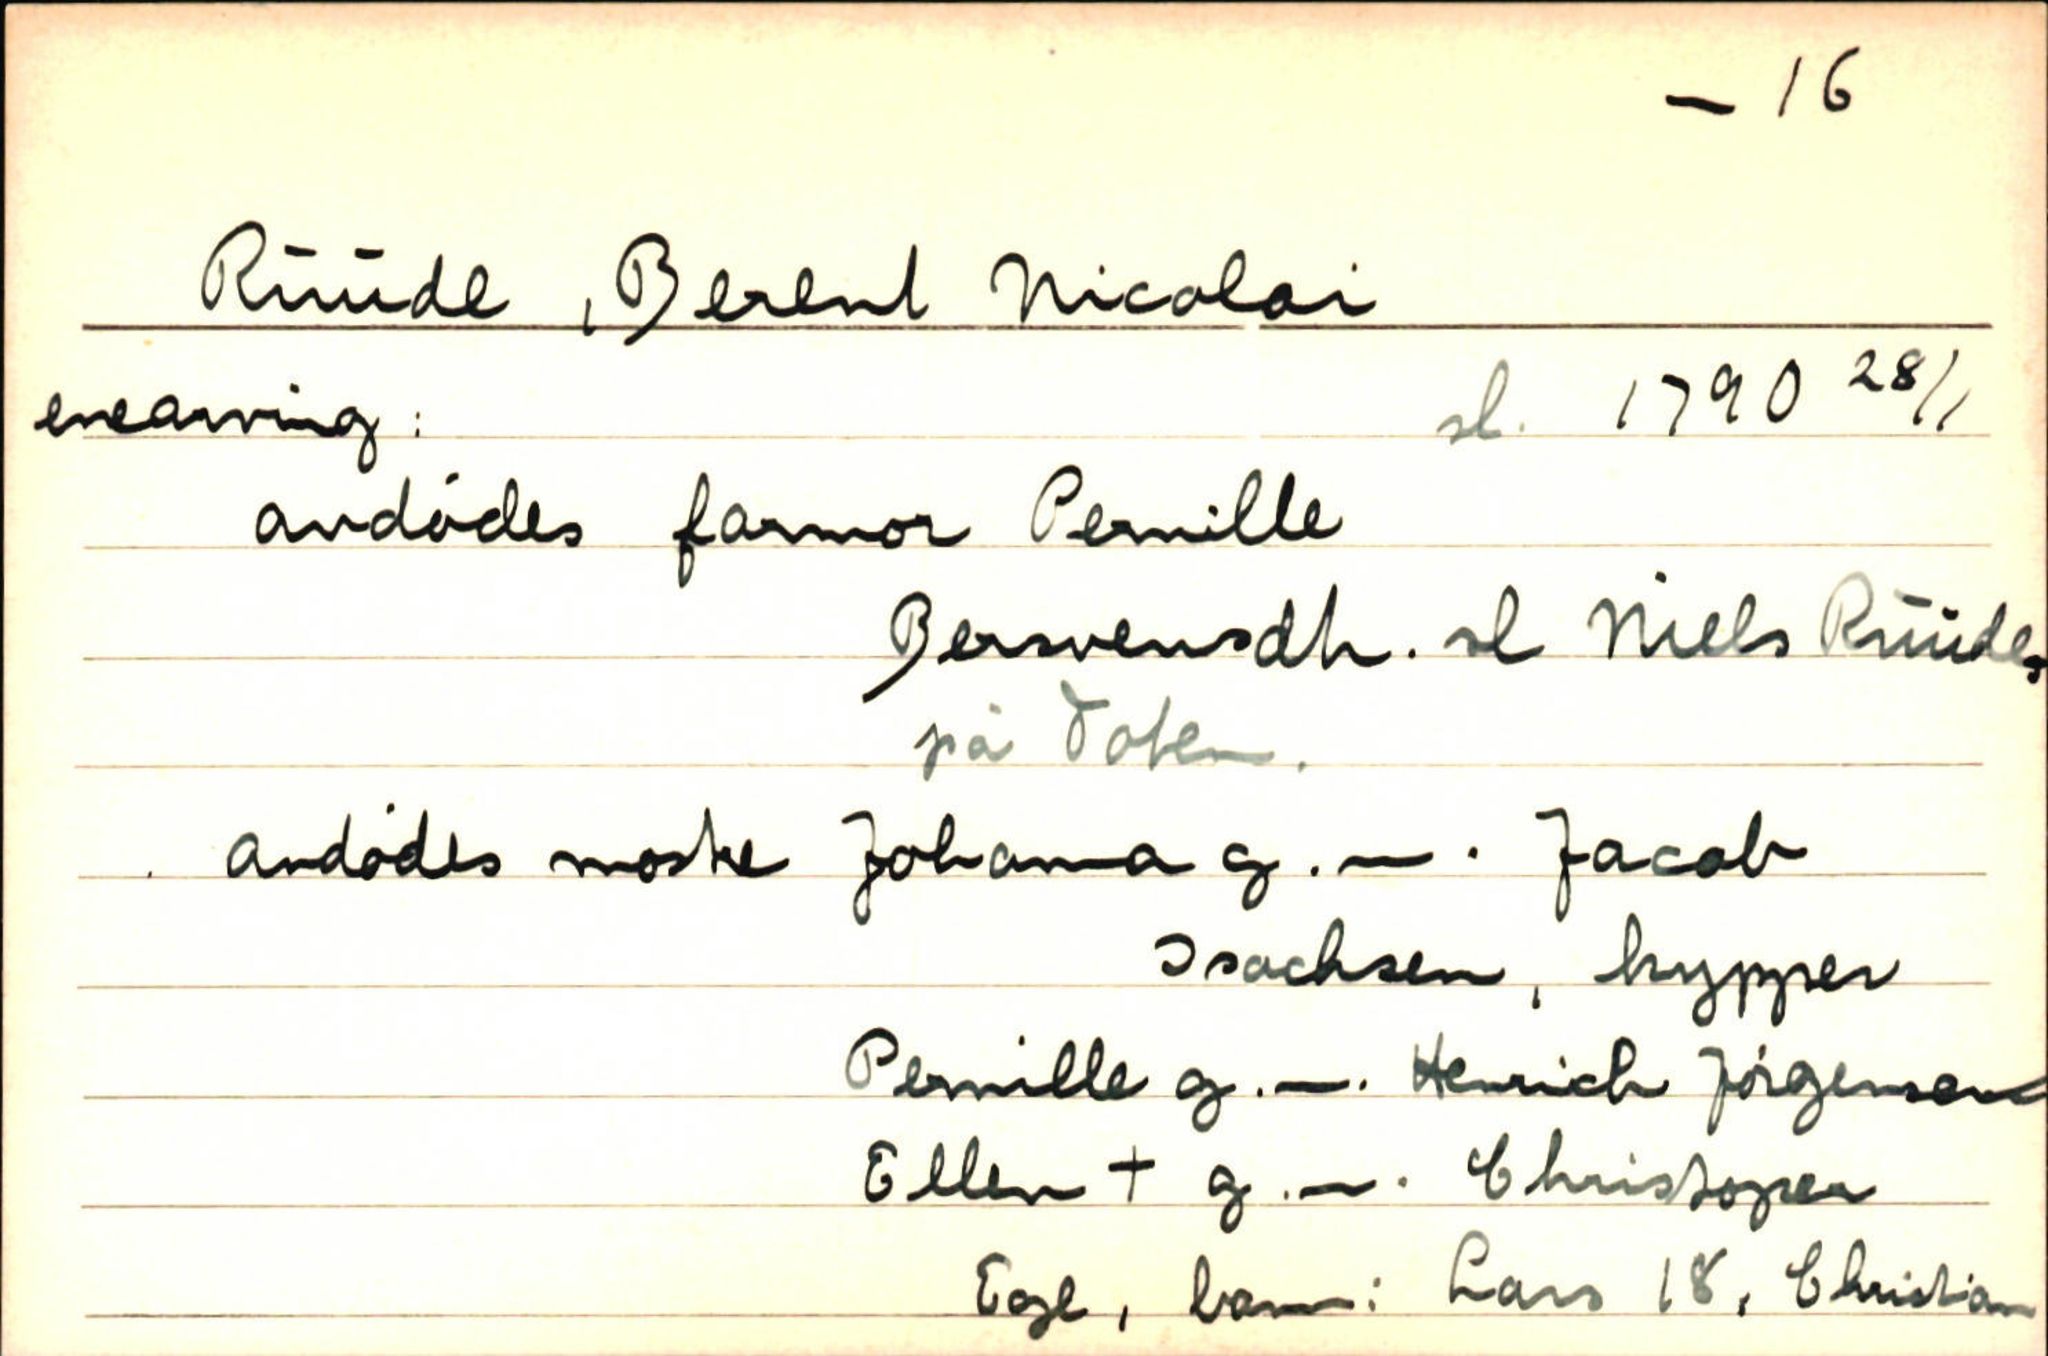 – 16
Rüüde, Berent Nicolai
enearving: sl. 1790 28/1
avdødes farmor Pernille
Bersvensdh. sl Niels Rüüdes
på Toten.
avdødes moste Johanna g.–. Jacob
Isachsen, kypper
Pernille g.–. Henrich Jørgensen
Ellen + g.–. Christoper
Ege, barn: Lars 18, Christian